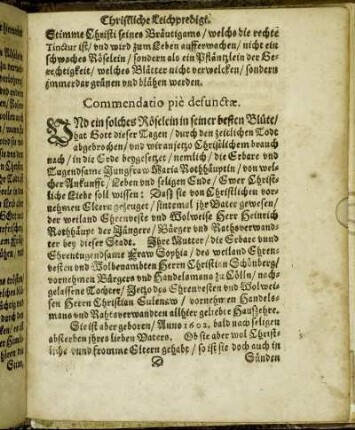 Christliche Leichpredigt.
Stimme Christi seines Bräutigams / welchs die rechte
Tinctur ist / vnd wird zum Leben aufferwachen / nicht ein
schwaches Röselein / sondern als ein Pfläntzlein der Ge-
rechtigkeit / welches Blätter nicht verwelcken / sondern
jmmerdar grünen vnd blühen werden.
Commendatio piè defunctæ.
VNd ein solches Röselein in seiner besten Blüte /
hat Gott dieser Tagen / durch den zeitlichen Todt
abgebrochen / vnd wir an jetzo Christlichem brauch
nach / in die Erde beygesetzet / nemlich / die Erbare vnd
Tugendsame Jungfraw Maria Rothhäuptin / von wel-
cher Ankunfft / Leben vnd seligen Ende / Ewer Christ-
liche Liebe soll wissen: Daß sie von Christlichen vor-
nehmen Eltern gezeuget / sintemal jhr Vater gewesen /
der weiland Ehrnveste vnd Wolweise Herr Heinrich
Rothhäupt der Jüngere / Bürger vnd Rathsverwand-
ter bey dieser Stadt. Jhre Mutter / die Erbare vnnd
Ehrentugendsame Fraw Sophia / des weiland Ehrn-
vesten vnd Wolbenambten Herrn Christian Schönberg /
vornehmen Bürgers vnd Handelsmans zu Cölln / nach-
gelassene Tochter / Jetzo des Ehrnvesten vnd Wolwei-
sen Herrn Christian Eulenaw / vornehmen Handels-
mans vnd Rahtsverwandten allhier geliebte Haußehre.
Sie ist aber geboren / Anno 1602. bald nach seligen
absterben jhres lieben Vatern. Ob sie aber wol Christ-
liche vnnd fromme Eltern gehabt / so ist sie doch auch in
Sünden